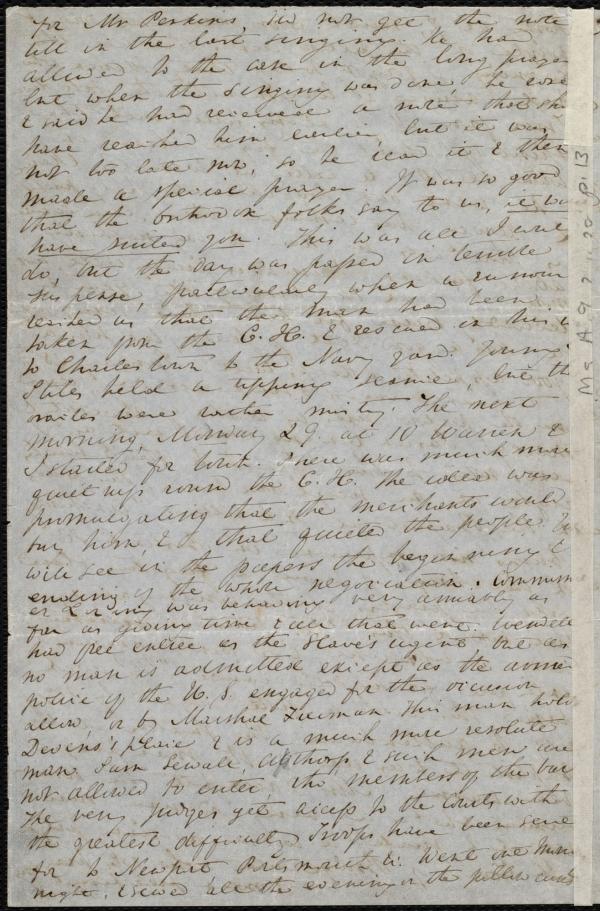 for Mr Perkins, did not get the note
till in the last singing. He had
allowed to the case in the long prayer
but when the singing was done, he rose
& said he had received a note that sh
have reached him earlier, but it was
not too late now, so he read it & then
made a special prayer. It was so good
that the orthodox folks say to us, it wd
have suited you. This was all I cd
do, but the day was passed in terrible
suspense, particularly when a rumour
reached us that the man had been
taken from the C.H. & rescued in his
to Charlestown to the Navy yard. Young
Stiles held a tipping service, but th
were rather misty. The next
morning, Monday 29. at 10 Warren &
I started for Court. There was much more
quietness round the C.H. The idea was
promulgating that the merchants would
buy him, & that quieted the people. You
will see in the papers the beginning &
ending of the whole negociation. Commission
er Loring was behaving very amiably as
far as giving time & all that were. Wendell
had free entree as the Slave's agent, but as
no man is admitted except as the armed
police of the U.S. engaged for the occasion
allow, or by Marshal Freeman. This man holds
Devens's place & is a much more resolute
man. Sam Sewall, & such men are
not allowed to enter, tho' members of the bar
The very judges get access to the Courts with
the greatest difficulty. Troops have been sent
for to Newport Portsmouth &c. Went one Mon
night. & sewed all the evening on the pillow cases
Ms A 9.2 p. 13